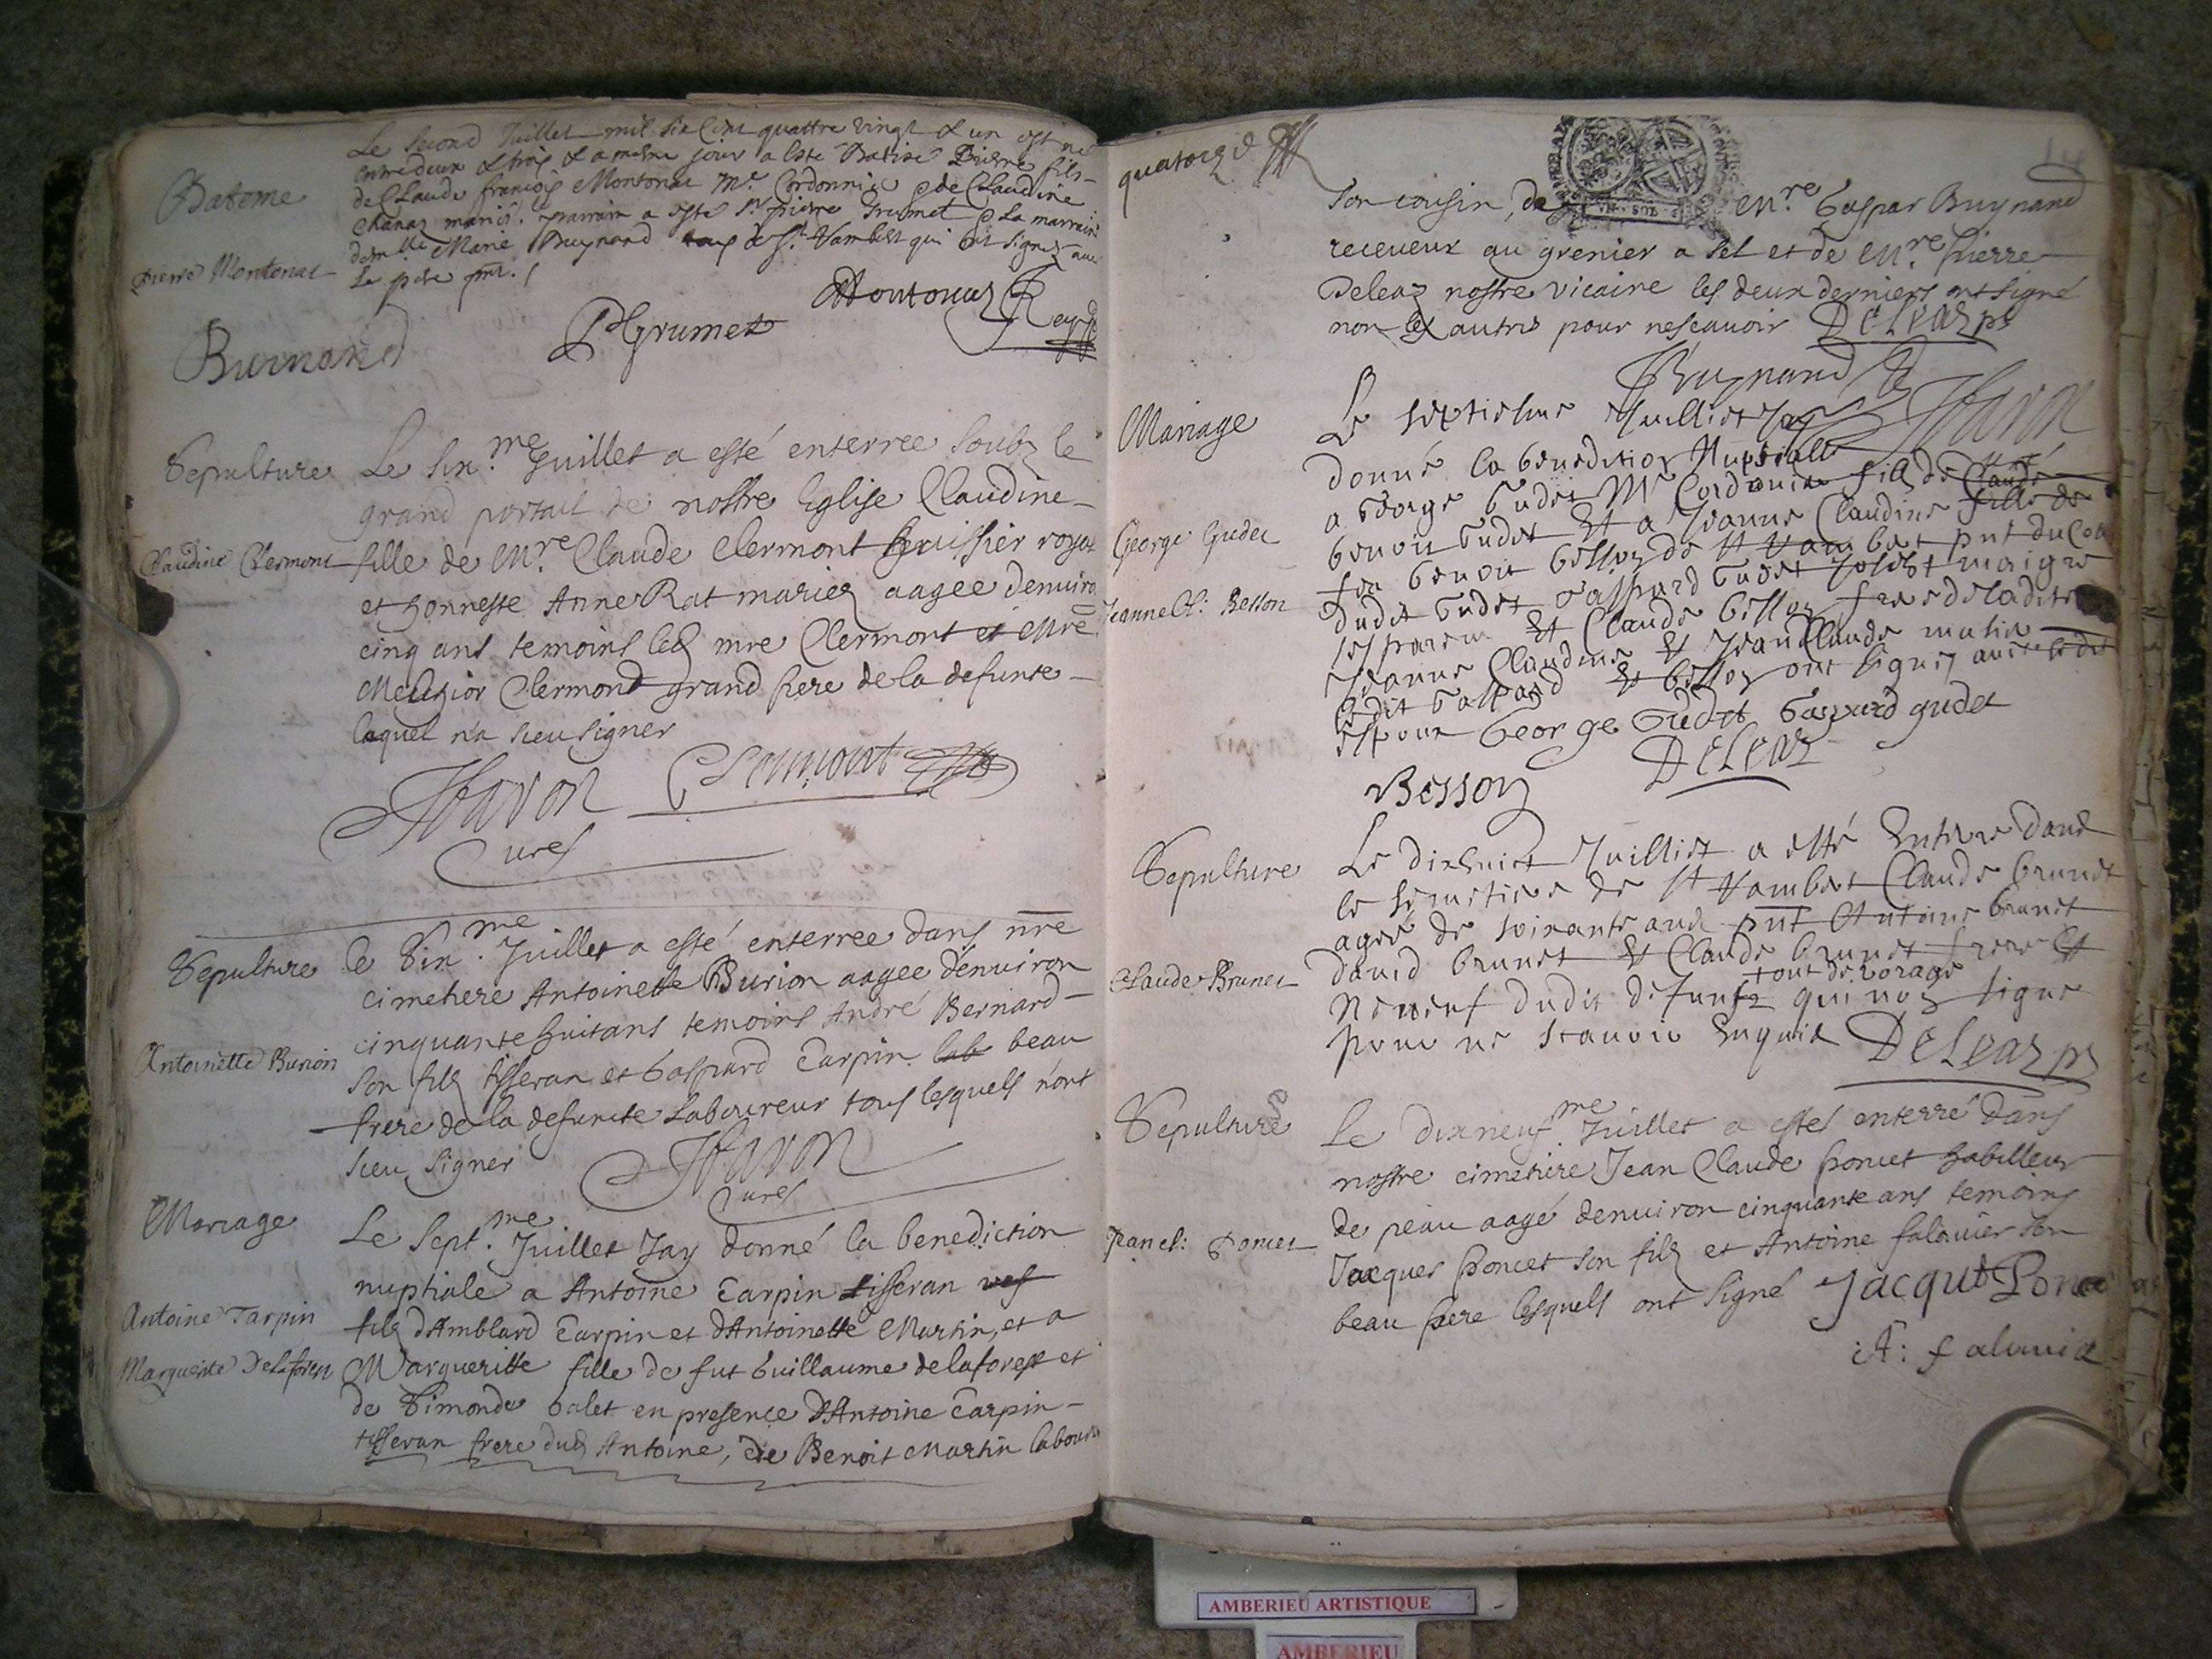 Batême
Pierre Montonat
Le second Juillet mil six cent quattre vingt & un est né
entre deux & trois & a mesme jour a esté Batisé Pierre fils
de Claude francois Montonat Mr. Cordonnier & de Claudine
Chanaz mariés. le parrain a esté Sr. pierre Grumet & La marraine
demlle Marie Buynand tous de St. Rambert qui ont signez avec
Le pere
Montonat
PGrumet
Buinand
Sepulture
Claudine Clermont
Le six.me Juillet a esté enterree soubz le
grand portail de nostre Eglise Claudine
fille de Mre. Claude Clermont huissier royal
et honneste Anne Rat mariez aagee denuiron
cinq ans temoins led mre Clermont et Mre
Melchior Clermond grand pere de la defunte
laquel n'a sceu signer
Favon Clermont
Curé
Sepulture
Antoinette Burion
Le Six.me Juillet a esté enterree dans nre
cimetiere Antoinette Burion aagee denuiron
cinquante huit ans temoins André Bernard
son filz tisseran et Gaspard Tarpin lab beau
frere de la defuncte Laboureur tous lesquels n'ont
sceu signer
Favon
Curé
Mariage
Antoine Tarpin
Marguerite Delaforest
Le Sept.me Juillet Jay donné la benediction
nuptiale a Antoine Tarpin tisseran
filz d'Amblard Tarpin et d'Antoinette Martin, et a
Margueritte fille de fut Guillaume delaforest et
de Simonde Galet en presence d'Antoine Tarpin
tisseran frere dud Antoine, de Benoit Martin laboureur
quatorze
14
son cousin, de Mre. Gaspar Buynand
receueur au grenier a sel et de Mre. Pierre
Deleaz nostre vicaire les deux derniers ont signé
non les autres pour ne scauoir Deleaz pr
Buynand Favon
Mariage
George Gudet
Jeanne Cl: Besson
Le septiesme Juilliet Jay
donné la benediction Nuptialle
a George Gudet Me Cordonnier fils de Claude
benoit Gudet Et a Jeanne Claudine fille de
feu benoit besson de St Rambert pnt
dudit Gudet Gaspard Gudet Joseph maigre
ses parens Et Claude besson frere de ladite
Jeanne Claudine & Jean Claude
ledit Gaspard & besson ont signez auec ledit
espoux George Gudet Gaspard gudet
Besson Deleaz
Sepulture
Claude Brunet
Le dixhuict Juilliet a esté Enterre dans
le semetiere de St Rambert Claude brunet
ageé de soixante ans pnt Antoine brunet
dauid brunet Et Claude brunet frere Et
Neueuf dudit defunct tout de vorage qui non signe
pour ne scauoir Enquis Deleaz pr
Sepulture
Jean cl: Poncet
Le dixneuf.me Juillet a esteé enterré dans
nostre cimetiere Jean Claude Poncet habilleur
de peau aagé denuiron cinquante ans temoins
Jacques Poncet son filz et Antoine falauier son
beau frere lesquels ont signé Jacque Poncet
A: falauie
AMBERIEU ARTISTIQUE
AMBERIEU